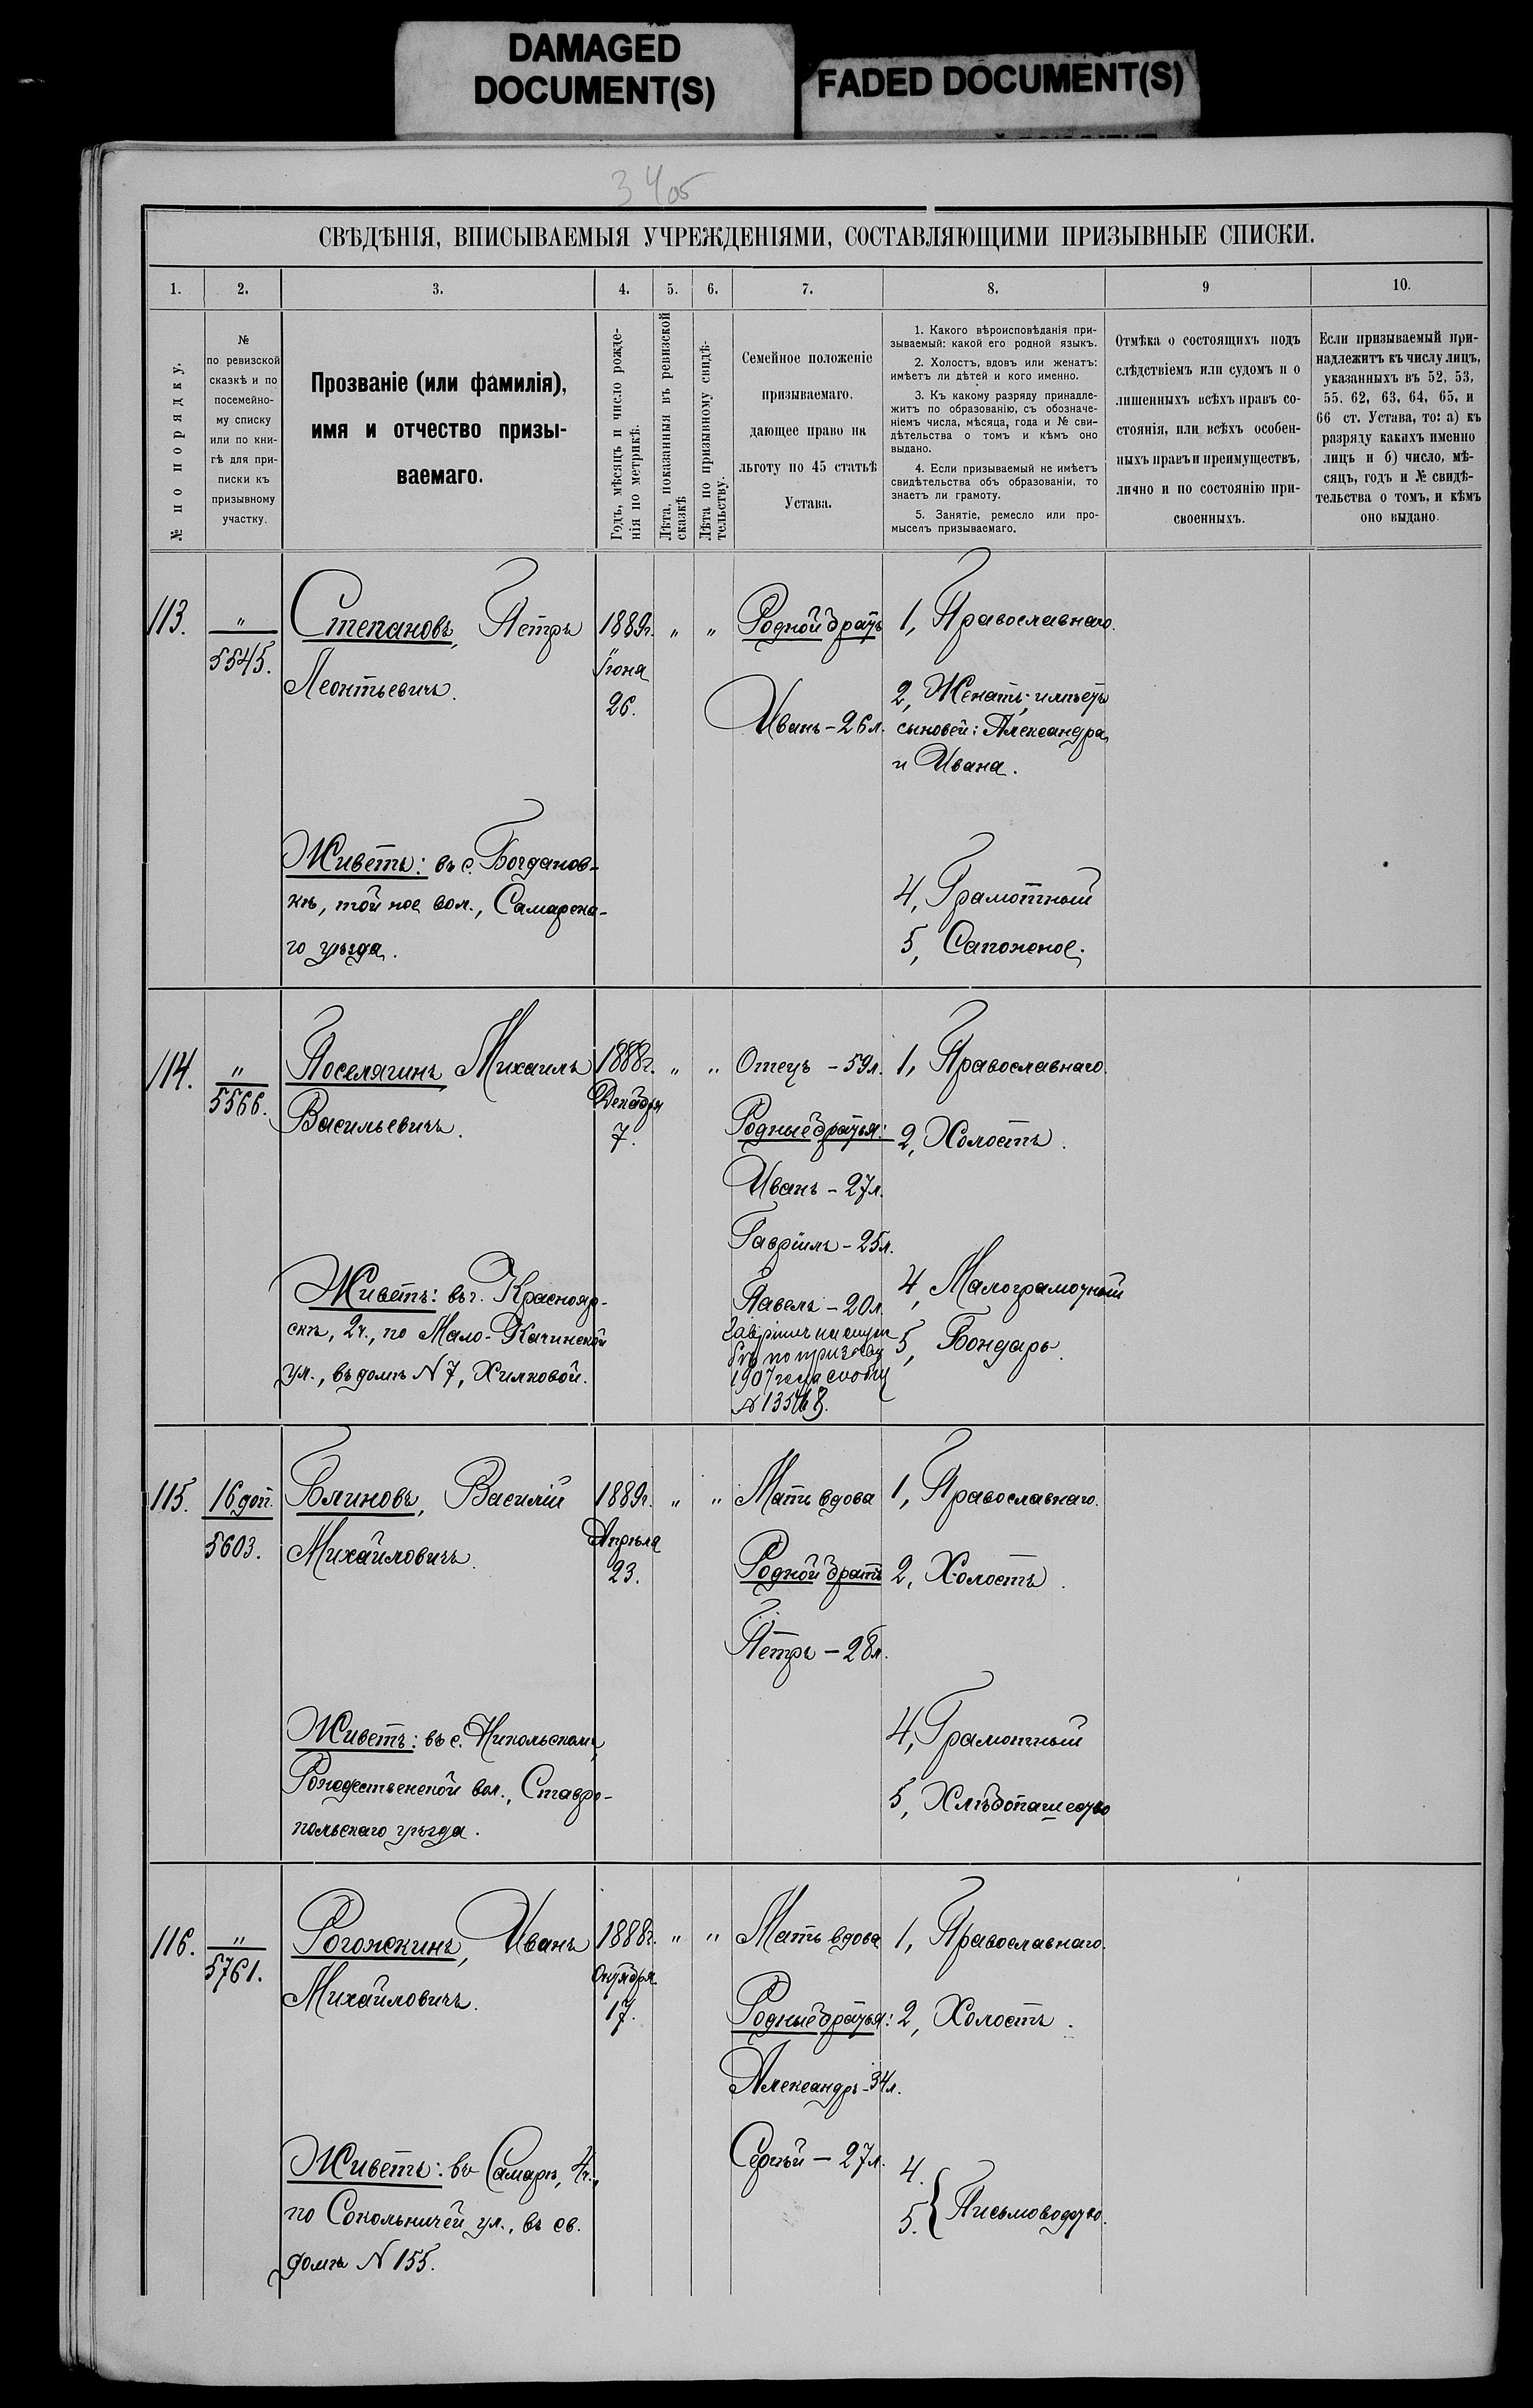 DAMAGED
DOCUMENT(S)
FADED DOCUMENT(S)
34об
СВѢДѢНІЯ, ВПИСЫВАЕМЫЯ УЧРЕЖДЕНІЯМИ, СОСТАВЛЯЮЩИМИ ПРИЗЫВНЫЕ СПИСКИ.
1. 2. 3. 4. 5. 6. 7. 8. 9 10.
№ по порядку.
№
по ревизской
сказкѣ и по
посемейно-
му списку
или по кни-
гѣ для при-
писки къ
призывному
участку.
Прозваніе (или фамилія),
имя и отчество призы-
ваемаго.
Годъ, мѣсяцъ и число рожде-
нія по метрикѣ.
Лѣта, показанныя въ ревизской
сказкѣ
Лѣта по призывному свидѣ-
тельству.
Семейное положеніе
призываемаго,
дающее право на
льготу по 45 статьѣ
Устава.
1. Какого вѣроисповѣданія при-
зываемый: какой его родной языкъ.
2. Холостъ, вдовъ или женатъ:
имѣетъ ли дѣтей и кого именно.
3. Къ какому разряду принадле-
житъ по образованію, съ обозначе-
ніемъ числа, мѣсяца, года и № сви-
дѣтельства о томъ и кѣмъ оно
выдано.
4. Если призываемый не имѣетъ
свидѣтельства объ образованіи, то
знаетъ ли грамоту.
5. Занятіе, ремесло или про-
мыселъ призываемаго.
Отмѣка о состоящихъ подъ
слѣдствіемъ или судомъ и о
лишенныхъ всѣхъ правъ со-
стоянія, или всѣхъ особен-
ныхъ правъ и преимуществъ,
лично и по состоянію при-
своенныхъ.
Если призываемый при-
надлежитъ къ числу лицъ,
указанныхъ въ 52, 53,
55. 62, 63, 64, 65, и
66 ст. Устава, то: а) къ
разряду какихъ именно
лицъ и б) число, мѣ-
сяцъ, годъ и № свидѣ-
тельства о томъ, и кѣмъ
оно выдано.
113.
"
5545.
Степановъ, Петръ
Леонтьевичъ.
Живетъ: въ с. Богданов-
кѣ, той же вол., Самарска-
го уѣзда.
1889г.
Іюня
26.
" "
Родной братъ
Иванъ - 26 л.
1, Православнаго.
2, Женатъ; имѣетъ
сыновей: Александра
и Ивана.
4, Грамотный
5, Сапожное.
114.
"
5566.
Поселягинъ Михаилъ
Васильевичъ.
Живетъ: въ г. Краснояр-
скѣ, 2 ч., по Мало-Качинской
ул., въ домѣ № 7, Хилковой.
1888г.
Декабря
7.
" "
Отецъ - 59 л.
Родные братья:
Иванъ - 27 л.
Гавріилъ - 25 л.
Павелъ - 20 л.
Гавріилъ на служ
бѣ по призыву
1907 года
№ 13548.
1, Православнаго.
2, Холостъ.
4, Малограмотный
5, Бондарь.
115.
16 доп.
5603.
Блиновъ, Василій
Михайловичъ.
Живетъ: въ с. Никольскомъ,
Рождественской вол., Ставро-
польскаго уѣзда.
1889г.
Апрѣля
23.
" "
Мать вдова
Родной братъ
Петръ - 28 л.
1, Православнаго.
2, Холостъ.
4, Грамотный
5, Хлѣбопашество
116.
"
5761.
Рогожкинъ, Иванъ
Михайловичъ.
Живетъ: въ Самарѣ, 4 ч.,
по Сокольничей ул., въ св.
домѣ № 155.
1888г.
Октября
17.
" "
Мать вдова
Родные братья:
Александръ - 34 л.
Сергѣй - 27 л.
1, Православнаго.
2, Холостъ.
4.
5. } Письмоводство.